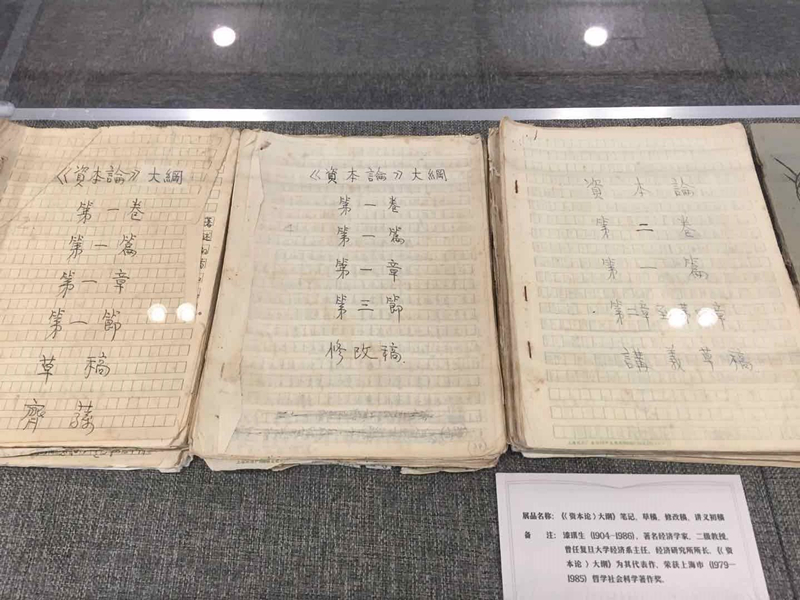 《資本論》大綱
第一卷
第一篇
第一章
第一節
草稿
《資本論》大綱
第一卷
第一篇
第一章
第三節
修改稿
資本論
第二卷
第一篇
第二章至第 章
講義草稿
展品名称:《〈资本论〉大纲》笔记、草稿、修改稿、讲义初稿
备 注:漆琪生(1904-1986),著名经济学家,二级教授,
曾任复旦大学经济系主任、经济研究所所长,《〈资
本论〉大纲》为其代表作,荣获上海市(1979—
1985)哲学社会科学著作奖。